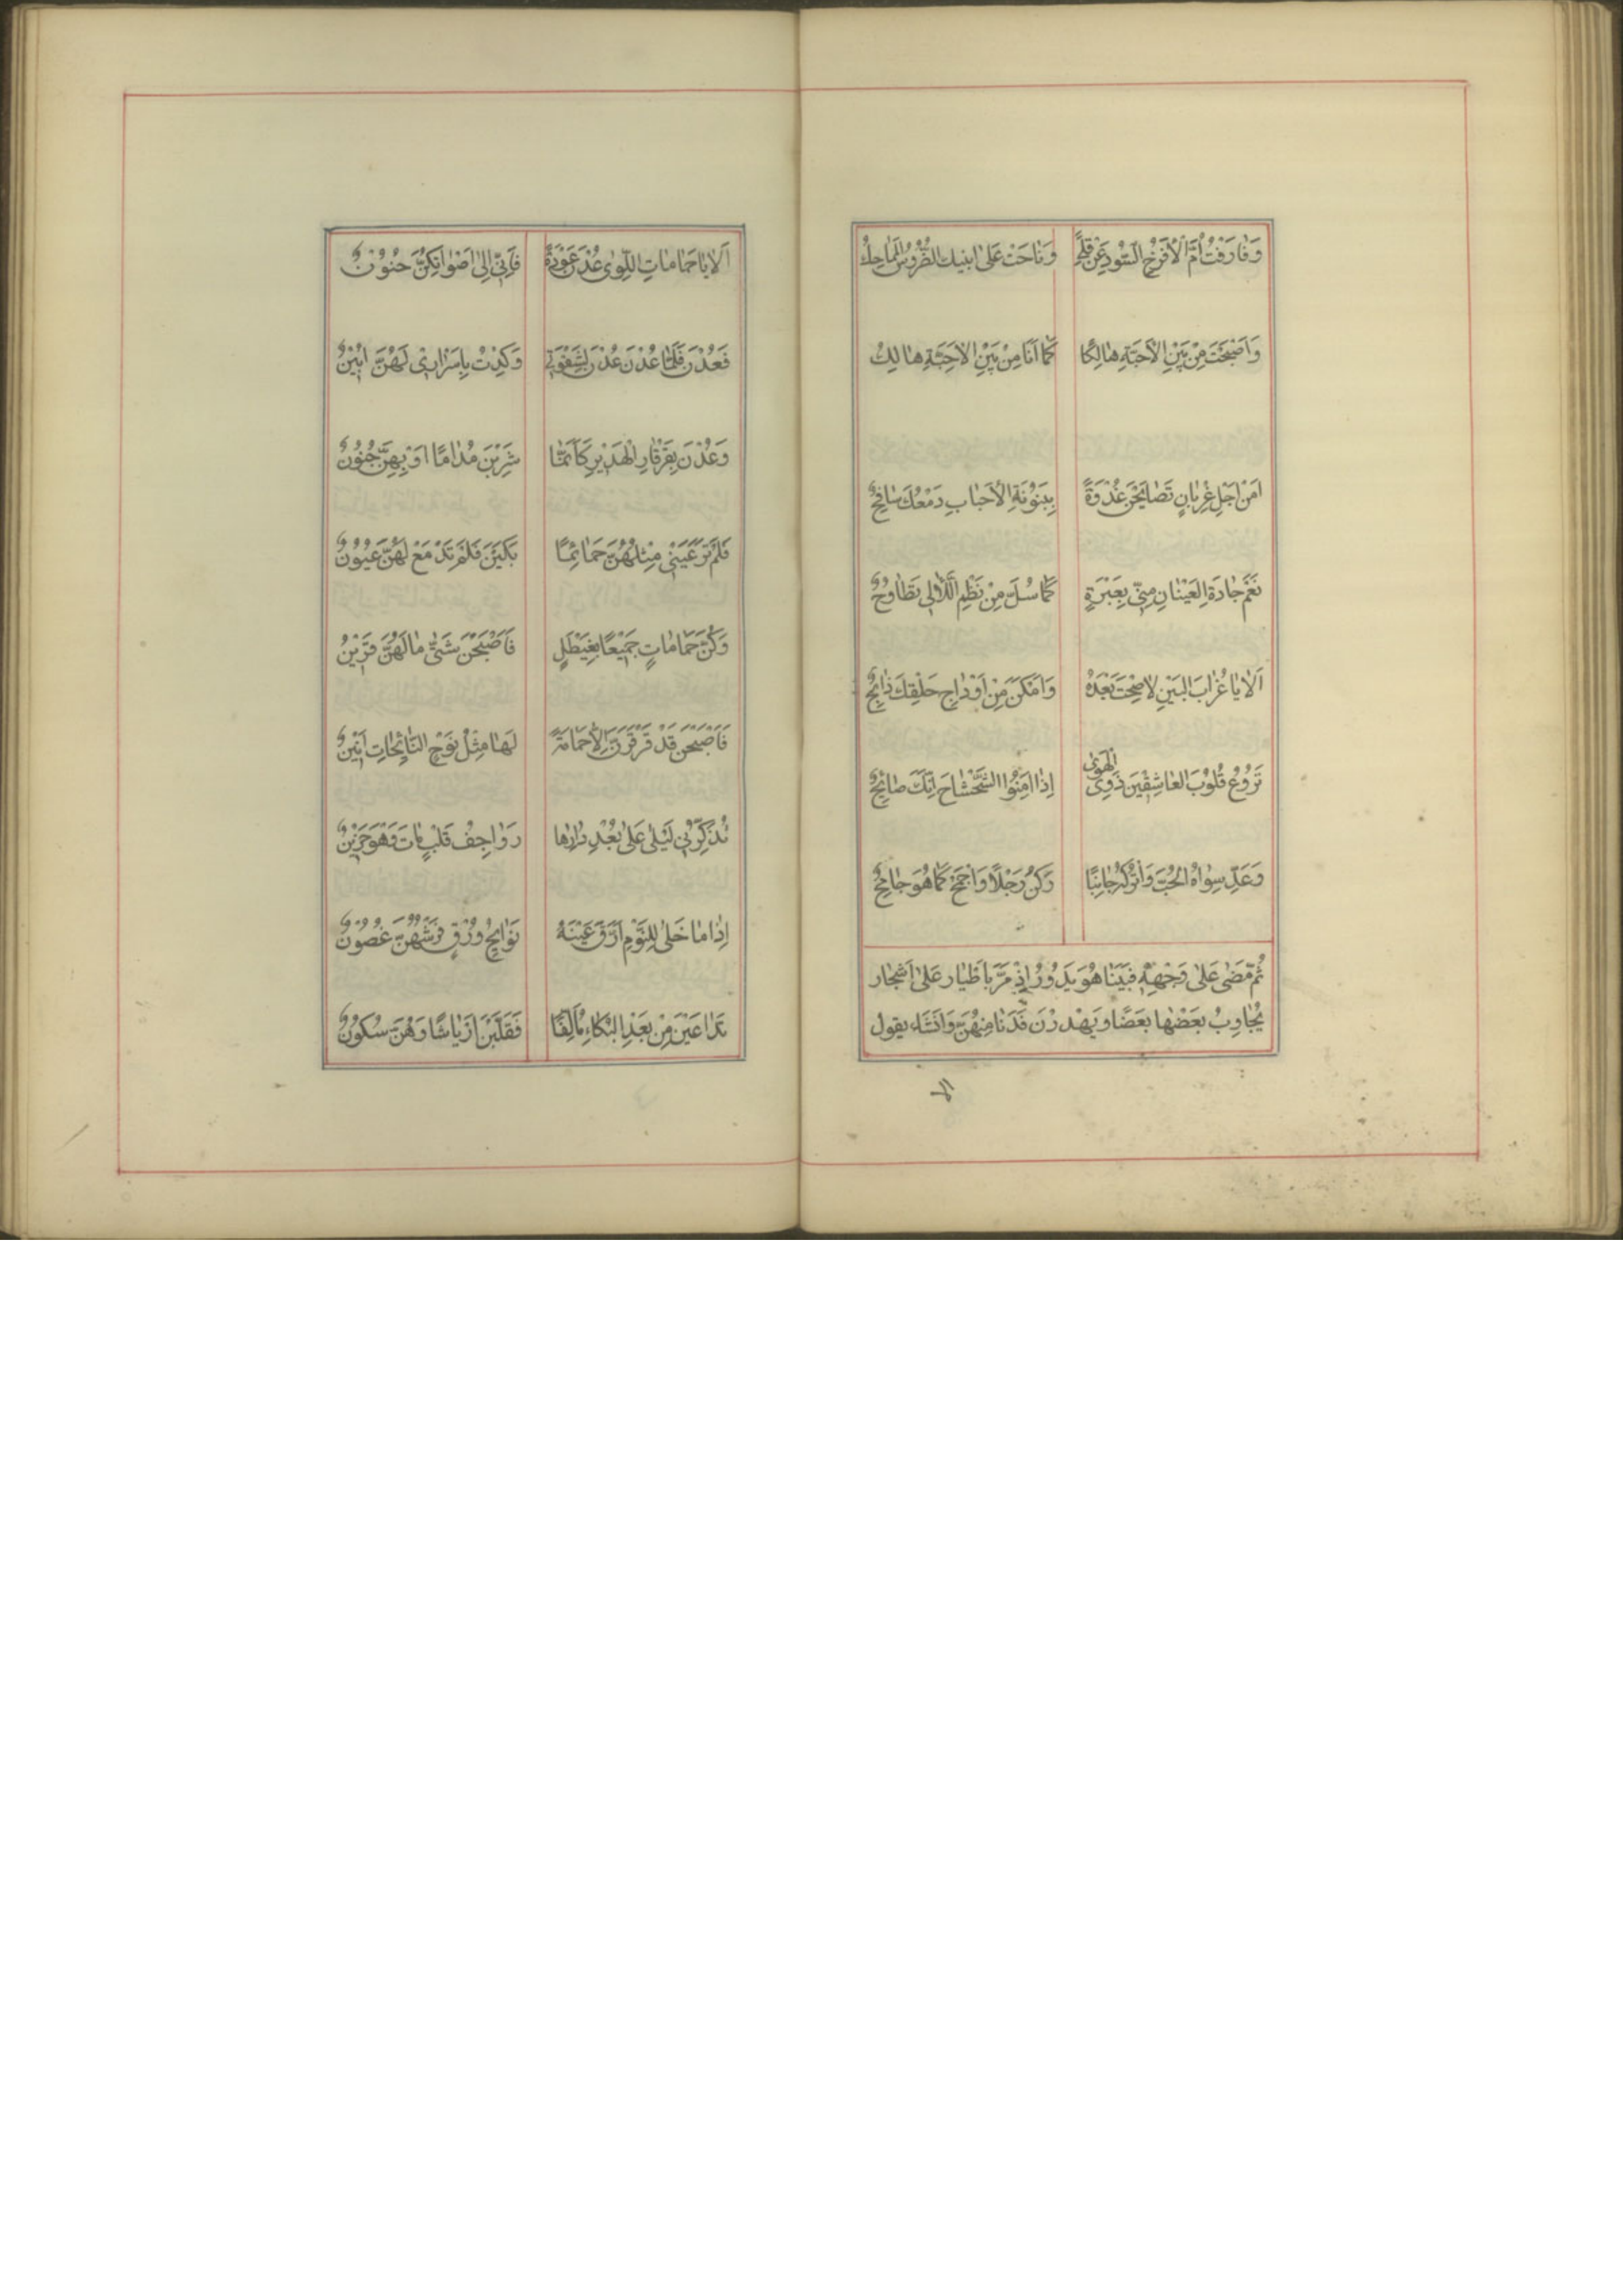 وَفَارَقْتُ أُمَّ الْأَفْرُخِ السُّودِ عَنْ قِلًى وَنَاحَتْ عَلَى ابْنَيْكَ
وَاَصْبَحْتَ مِنْ بَيْنِ الْأَحِبَّةِ هَالِكًا كَمَا اَنَا مِنْ بَيْنِ الْأَحِبَّةِ هَالِكُ
اَمِنْ اَجْلِ غِرْبَانٍ تَصَايَحْنَ غُدْوَةً بِبَيْنُونَةِ الْأَحْبَابِ دَمْعُكَ سَافِحُ
نَعَمْ جَادَةِ الْعَيْنَانِ مِنِّي بِعَبْرَةٍ كَمَا سُلَّ مِنْ نَظْمِ اللَّآلِي تَطَاوُحُ
اَلَا يَا غُرَابَ الْبَيْنِ لَا صِحْتَ بَعْدَهُ وَاَمْكَنَ مِنْ اَوْدَاجِ حَلْقِكَ ذَابِحُ
تَرُوعُ قُلُوبَ الْعَاشِقِينَ ذَوِي الْهَوَى اِذَا اَمِنُوا الشَّحْشَاحَ اِنَّكَ صَائِحُ
وَعَدِّ سِوَاهُ الْحُبَّ وَاتْرُكْهُ جَانِبًا وَكُنْ رَجُلًا وَاجْمَحْ كَمَا هُوَ جَامِحُ
ثُمَّ مَضَى عَلَى وَجْهِهِ فَبَيْنَا هُوَ يَدُورُ اِذْ مَرَّ بِاَطْيَارٍ عَلَى اَشْجَار
يُجَاوِبُ بَعْضُهَا بَعْضًا وَيَهْدِرْنَ فَدَنَا مِنْهُنَّ وَاَنْشَاءَ يقول
الا
اَلَا يَا حَمَامَاتِ اللِّوَى عُدْنَ عَوْدَةً فَاِنِّي اِلَى اَصْوَاتِكُنَّ حَنُونُ
فَعُدْنَ فَلَمَّا عُدْنَ عُدْنَ لِشَقْوَتِي وَكِدْتُ بِاَسْرَارِي لَهُنَّ اُبِينُ
وَعُدْنَ بِقَرْقَارِ الْهَدِيرِ كَاَنَّمَا شَرِبْنَ مُدَامًا اَوْ بِهِنَّ جُنُونُ
فَلَمْ تَرَ عَيْنِي مِثْلَهُنَّ حَمَائِمًا بَكَيْنَ فَلَمْ تَدْمَعْ لَهُنَّ عُيُونُ
وَكُنَّ حَمَامَاتٍ جَمِيعًا بِغَيْطَلٍ فَاَصْبَحْنَ شَتَّى مَا لَهُنَّ قَرِينُ
فَاَصْبَحْنَ قَدْ قَرْقَرْنَ اِلَّا حَمَامَةً لَهَا مِثْلُ نَوْحِ النَّائِحَاتِ اَنِينُ
تُذَكِّرُنِي لَيْلَى عَلَى بُعْدِ دَارِهَا رَوَاجِفُ قَلْبٍ مَاتَ وَهْوَ حَزِينُ
اِذَا مَا خَلَى لِلنَّوْمِ اَرَّقَ عَيْنَهُ نَوَايِحُ وُرْقٍ فَرْشُهُنَّ غُصُونُ
تَدَاعَيْنَ مِنْ بَعْدِ الْبُكَاءِ تَأَلُّفًا فَقَلَّبْنَ اَرْيَاشًا وَهُنَّ سُكُونُ